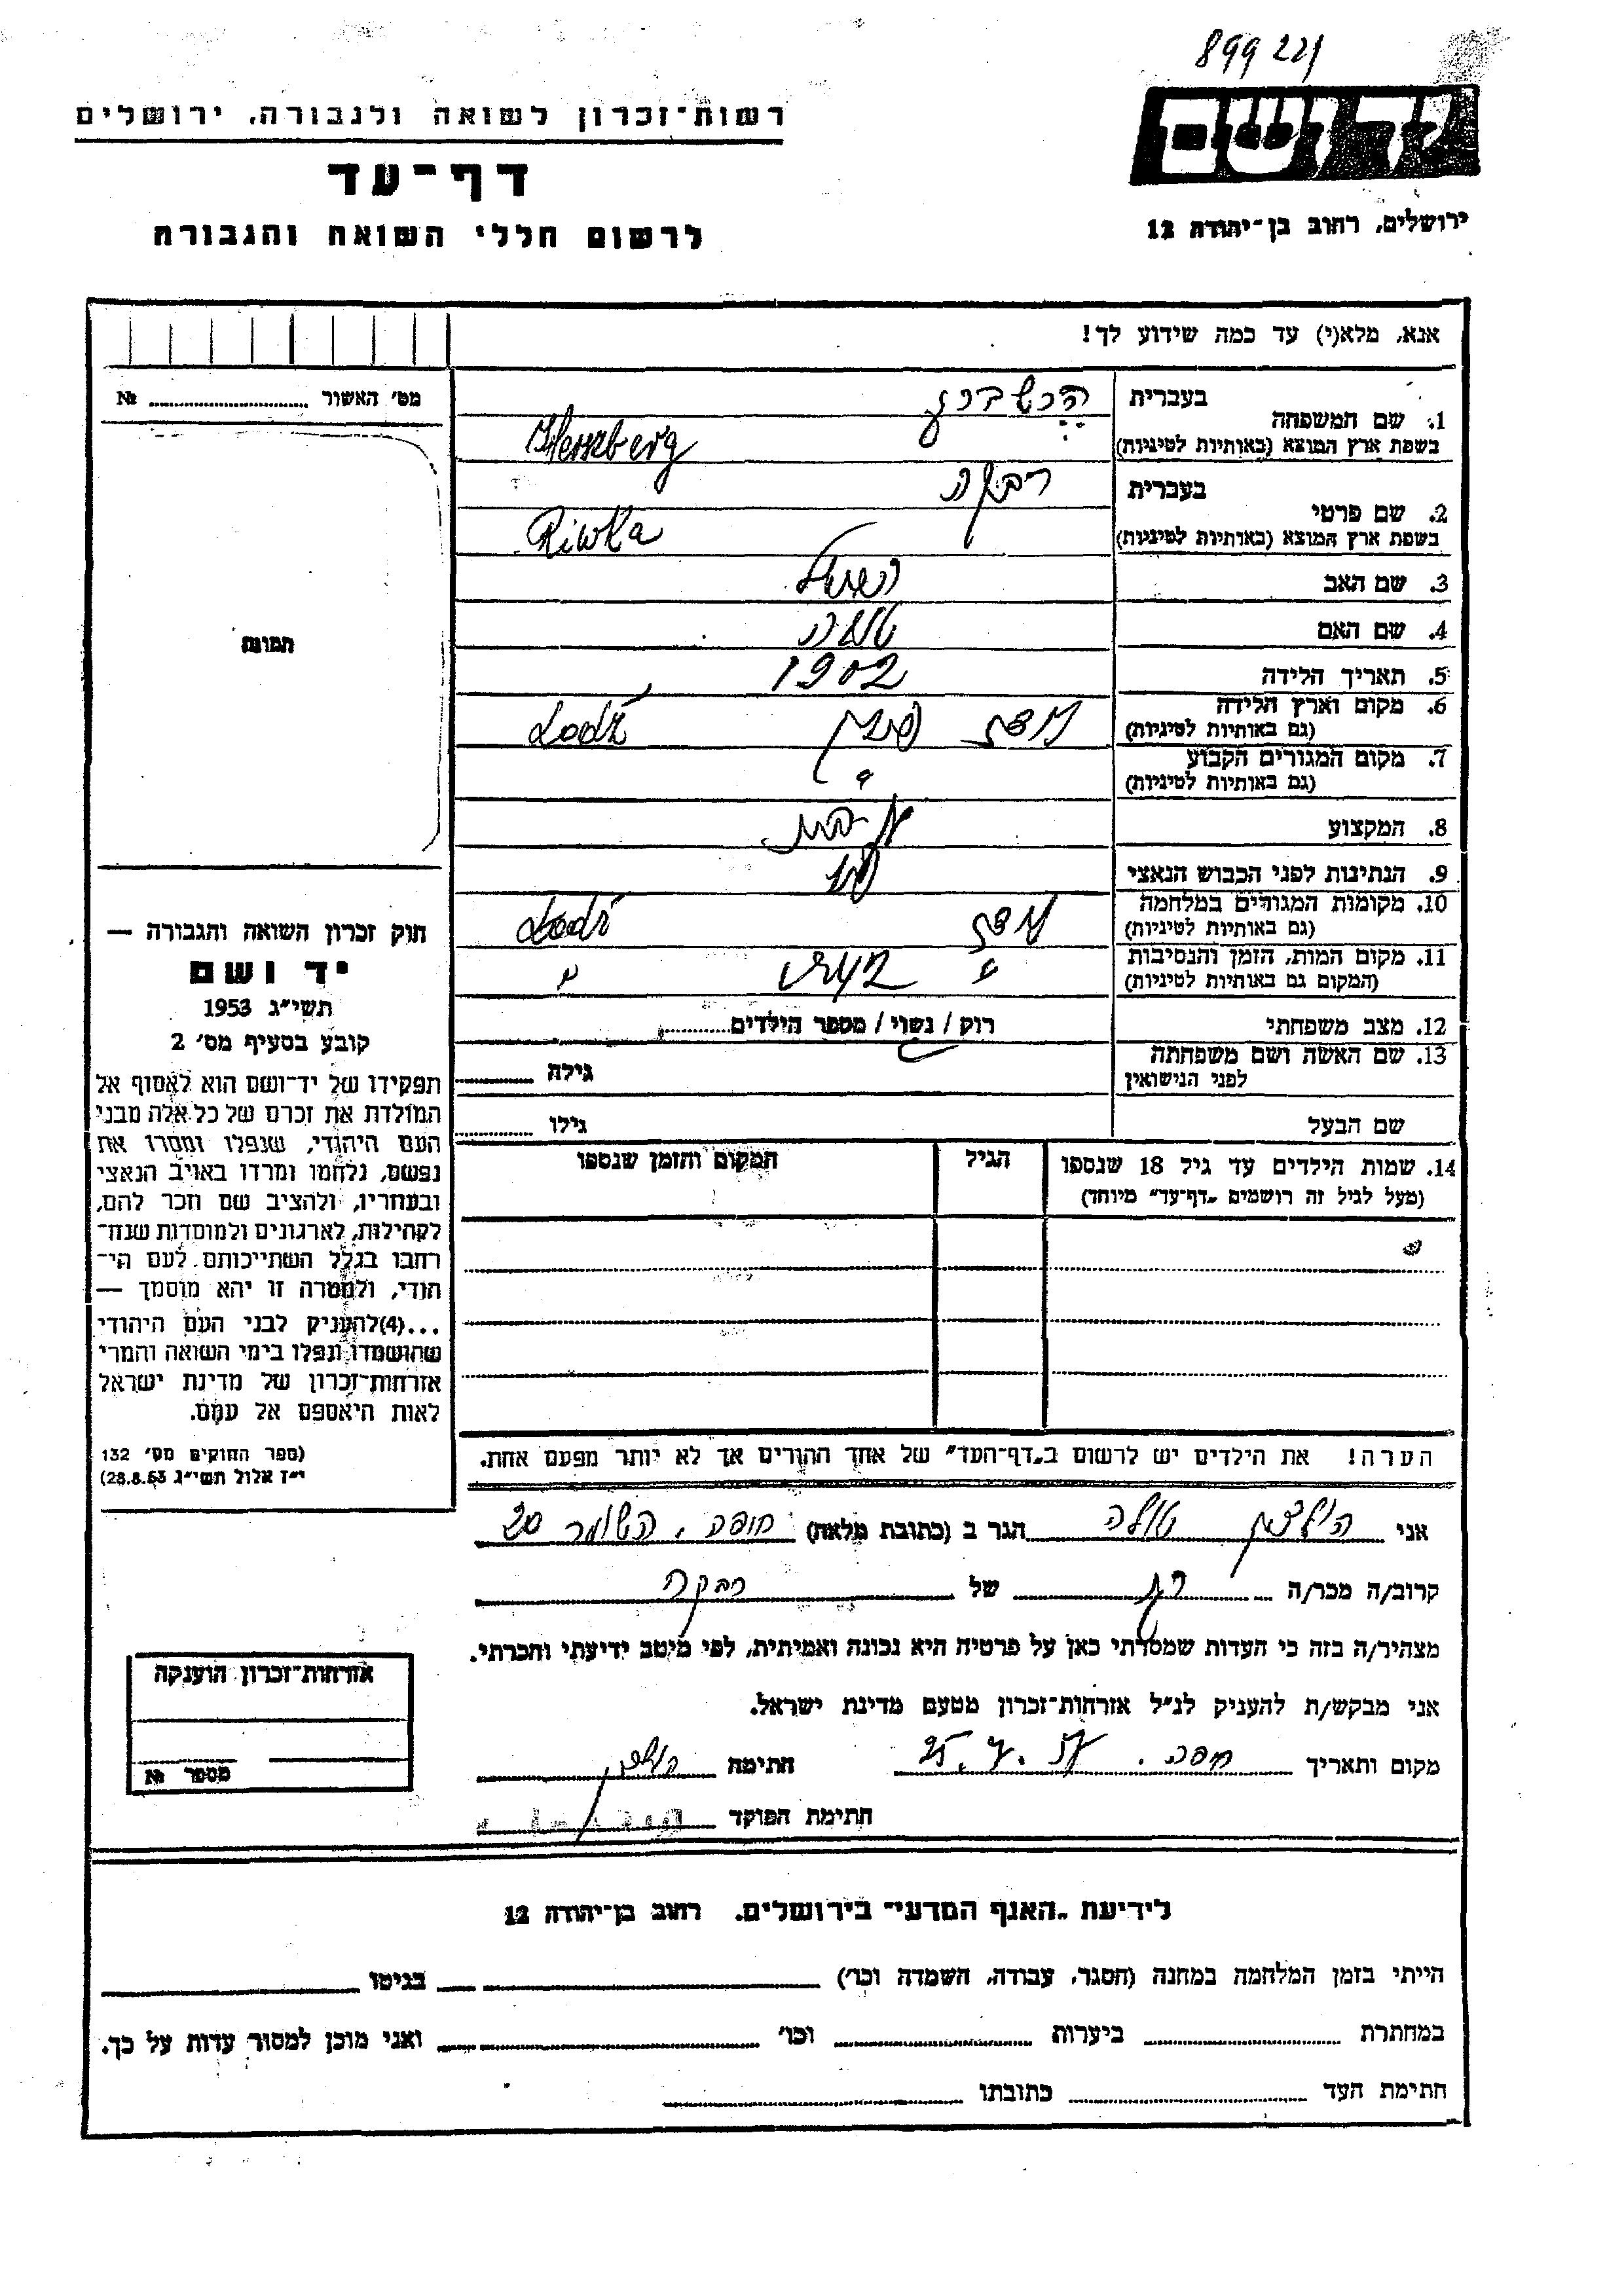 899 221
רשות־זכרון לשואה ולגבורה, ירושלים
דף־עד
לרשום חללי השואה והגבורה
יד ושם
ירושלים, רחוב בן־יהודה 12
אנא, מלא(י) עד כמה שידוע לך!
מס׳ האשור ........ №
תמונה
בעברית
1. שם המשפחה
בשפת ארץ המוצא (באותיות לטיניות)
הרשברג
Herszberg
בעברית רבקה
2. שם פרטי
בשפת ארץ המוצא (באותיות לטיניות) Riwka
3. שם האב
4. שם האם
5. תאריך הלידה 1902
6. מקום וארץ הלידה לודז פולין Lodź
(גם באותיות לטיניות)
7. מקום המגורים הקבוע
(גם באותיות לטיניות)
8. המקצוע
9. הנתינות לפני הכבוש הנאצי
10. מקומות המגורים במלחמה לודז Lodź
(גם באותיות לטיניות)
11. מקום המות, הזמן והנסיבות
(המקום גם באותיות לטיניות)
12. מצב משפחתי רוק / נשוי / מספר הילדים........
13. שם האשה ושם משפחתה
לפני הנישואין גילה ........
שם הבעל גילו ........
14. שמות הילדים עד גיל 18 שנספו
(מעל לגיל זה רושמים „דף־עד” מיוחד)
הגיל
המקום והזמן שנספו
חוק זכרון השואה והגבורה —
יד ושם
תשי״ג 1953
קובע בסעיף מס׳ 2
תפקידו של יד־ושם הוא לאסוף אל
המולדת את זכרם של כל אלה מבני
העם היהודי, שנפלו ומסרו את
נפשם, נלחמו ומרדו באויב הנאצי
ובעוזריו, ולהציב שם וזכר להם,
לקהילות, לארגונים ולמוסדות שנח־
רבו בגלל השתייכותם לעם הי־
הודי, ולמטרה זו יהא מוסמך —
...(4)להעניק לבני העם היהודי
שהושמדו ונפלו בימי השואה והמרי
אזרחות־זכרון של מדינת ישראל
לאות היאספם אל עמם.
(ספר החוקים מס׳ 132
י״ז אלול תשי״ג 28.8.53)
הערה! את הילדים יש לרשום ב„דף־העד” של אחד ההורים אך לא יותר מפעם אחת.
אני הגר ב (כתובת מלאה) חיפה, השומר 20
קרוב/ה מכר/ה של רבקה
מצהיר/ה בזה כי העדות שמסרתי כאן על פרטיה היא נכונה ואמיתית, לפי מיטב ידיעתי והכרתי.
אני מבקש/ת להעניק לנ״ל אזרחות־זכרון מטעם מדינת ישראל.
מקום ותאריך חיפה. חתימה
חתימת הפוקד
אזרחות־זכרון הוענקה
מספר №
לידיעת „האגף המדעי” בירושלים. רחוב בן־יהודה 12
הייתי בזמן המלחמה במחנה (הסגר, עבודה, השמדה וכו׳) בגיטו
במחתרת ביערות וכו׳ ואני מוכן למסור עדות על כך.
חתימת העד כתובתו